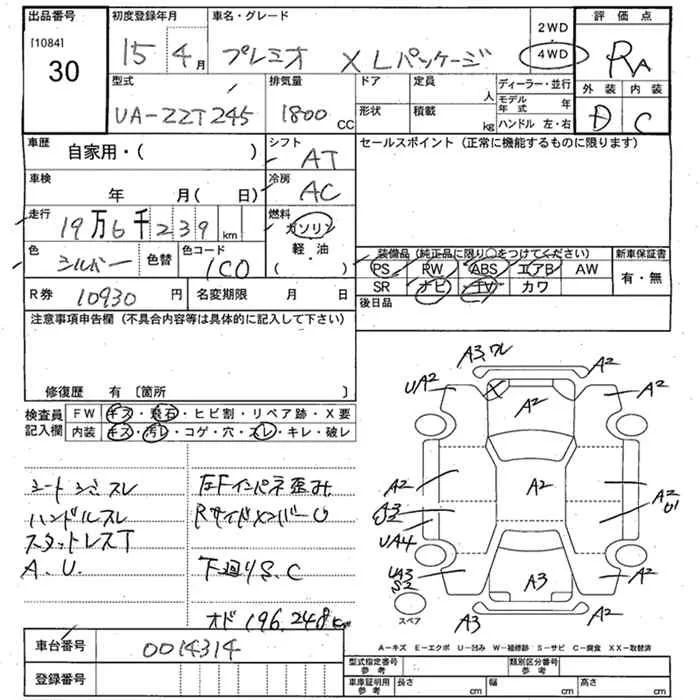 出品番号 初度登録年月 車名・グレード 評価点
[1084] 30 15 4月 プレミオ X Lパッケージ 2WD 4WD RA
型式 排気量 ドア 定員 人 ディーラー・並行 外装 内装
UA-ZZT245 1800 CC 形状 積載 kg モデル年式 年 ハンドル 左・右 D C
車歴 自家用・( ) シフト AT セールスポイント (正常に機能するものに限ります)
車検 年 月( 日) 冷房 AC
走行 19万6千239 km 燃料 ガソリン 軽・油 ( )
色 シルバー 色替 色コード 1C0
装備品 (純正品に限り○をつけてください) 新車保証書
PS PW ABS エアB AW 有・無
SR ナビ TV カワ
R券 10930 円 名変期限 月 日 後日品
注意事項申告欄 (不具合内容等は具体的に記入して下さい)
修復歴 有 〔箇所 〕
検査員記入欄 FW キズ・飛石・ヒビ割・リペア跡・X要
内装 キズ・汚レ・コゲ・穴・スレ・キレ・破レ
シートシミスレ 左Fインパネ歪み
ハンドルスレ RサイドメンバーU
スタットレスT
A.U. 下廻りS.C
オド 196,248km
A3,ワレ
UA2 A2 A2
A2 A2 A2 U1
UA4
UA3 S2 A3 A2
A3 A2
スペア
A-キズ E-エクボ U-凹み W-補修跡 S-サビ C-腐食 XX-取替済
車台番号 0014314
登録番号
型式指定番号 参考 類別区分番号 参考
車庫証明用 参考 長さ cm 幅 cm 高さ cm